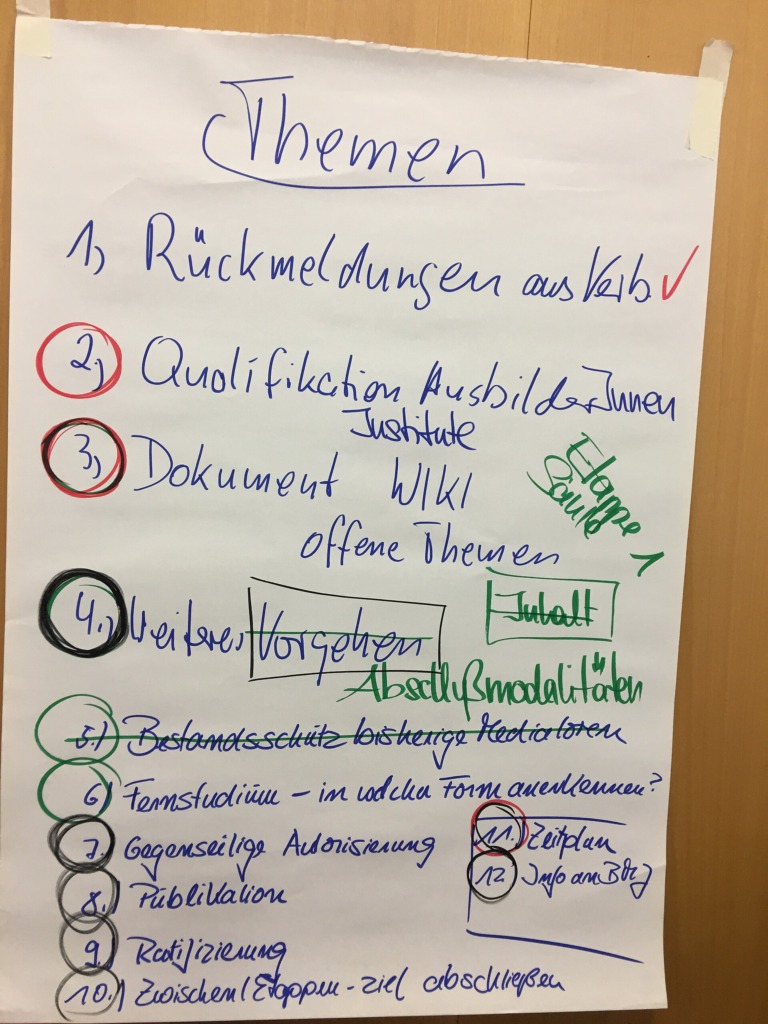 Themen
1, Rückmeldungen aus Verb. ✓
2, Qualifikation AusbilderInnen
Institute
3, Dokument WIKI
offene Themen
Etappe 1
Säule
4., Weiteres Vorgehen
Inhalt
Abschlußmodalitäten
5.) Bestandsschutz bisherige Mediatoren
6) Fernstudium – in welcher Form anerkennen?
7. Gegenseitige Autorisierung
8.) Publikation
9. Ratifizierung
10.) Zwischen/Etappen-ziel abschließen
11. Zeitplan
12. Info an